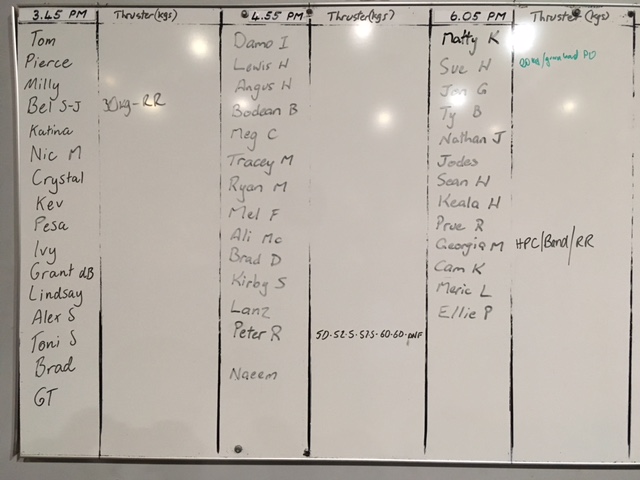 3.45 PM Thruster(kgs)
Tom
Pierce
Milly
Bel S-J 30kg-RR
Katina
Nic M
Crystal
Kev
Pesa
Ivy
Grant dB
Lindsay
Alex S
Toni S
Brad
GT
4.55 PM Thruster(kgs)
Damo I
Lewis H
Angus H
Bodean B
Meg C
Tracey M
Ryan M
Mel F
Ali Mc
Brad D
Kirby S
Lanz
Peter R 50·52.5·57.5·60·60·DNF
Naeem
6.05 PM Thruster (kgs)
Matty K
Sue H
Jon G
Ty B
Nathan J
Jodes
Sean H
Keala H
Prue R
Georgia M HPC/Band/RR
Cam K
Meric L
Ellie P